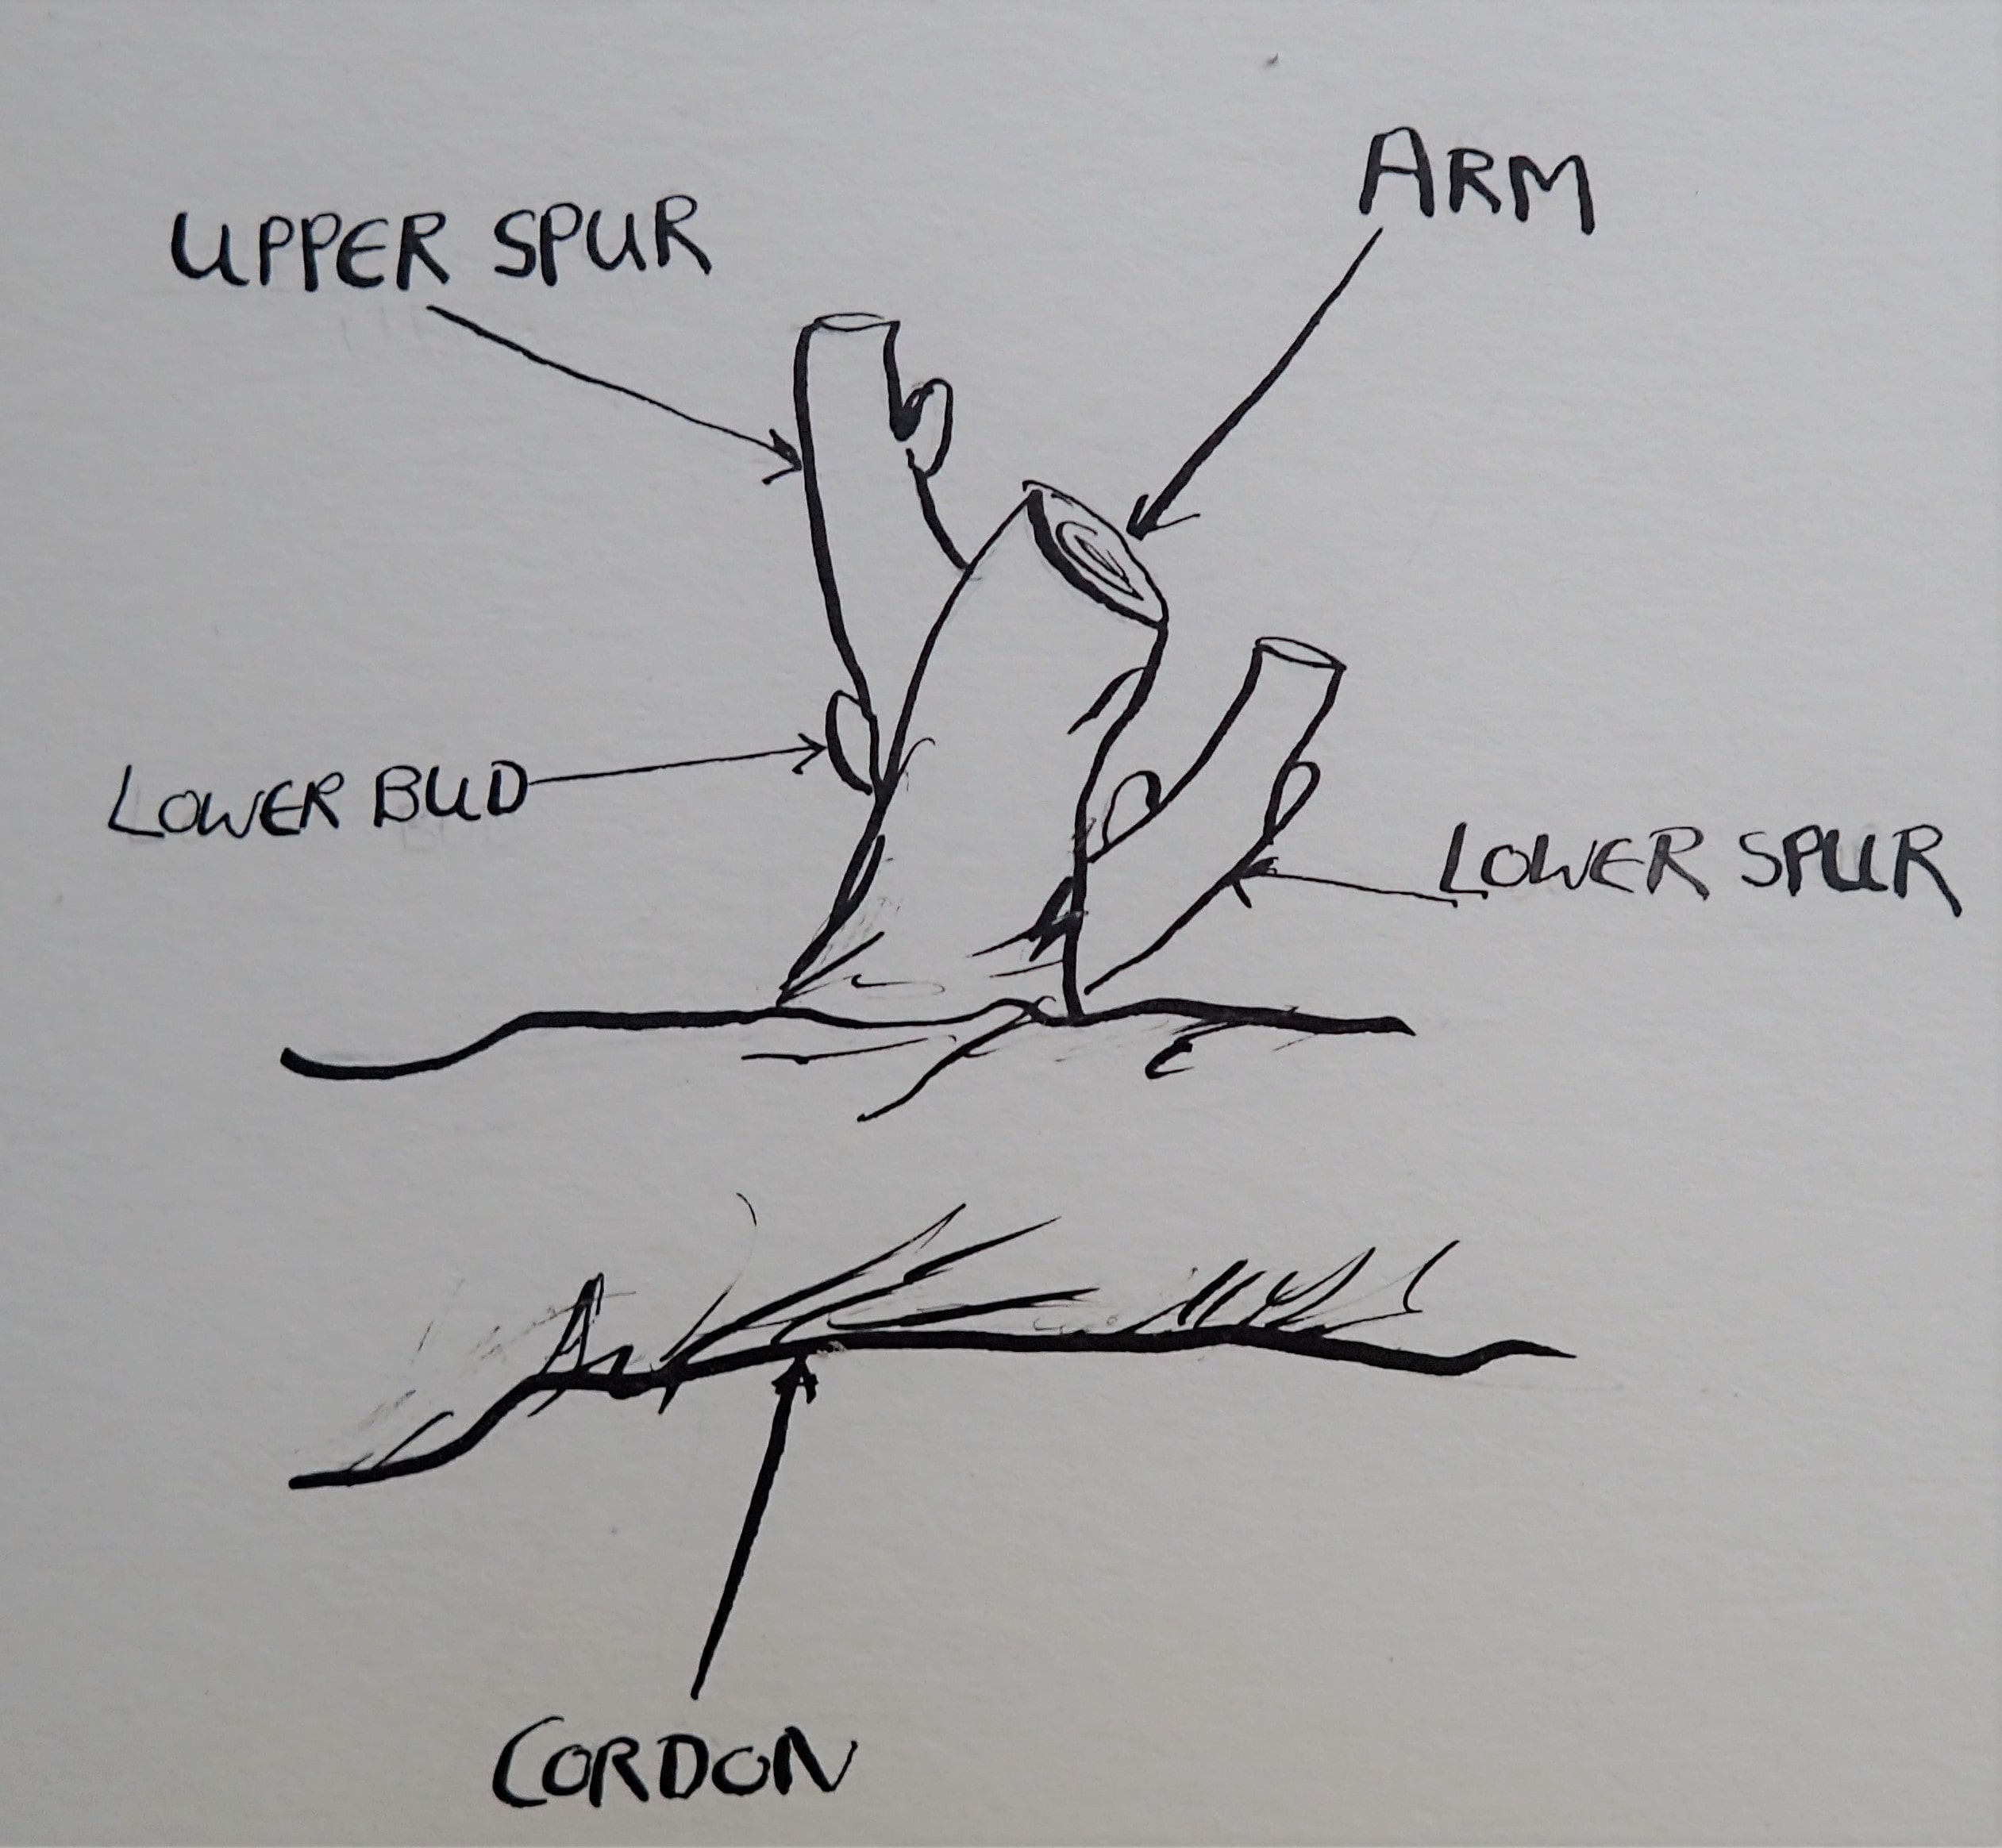 ARM
UPPER SPUR
LOWER BUD
LOWER SPUR
CORDON